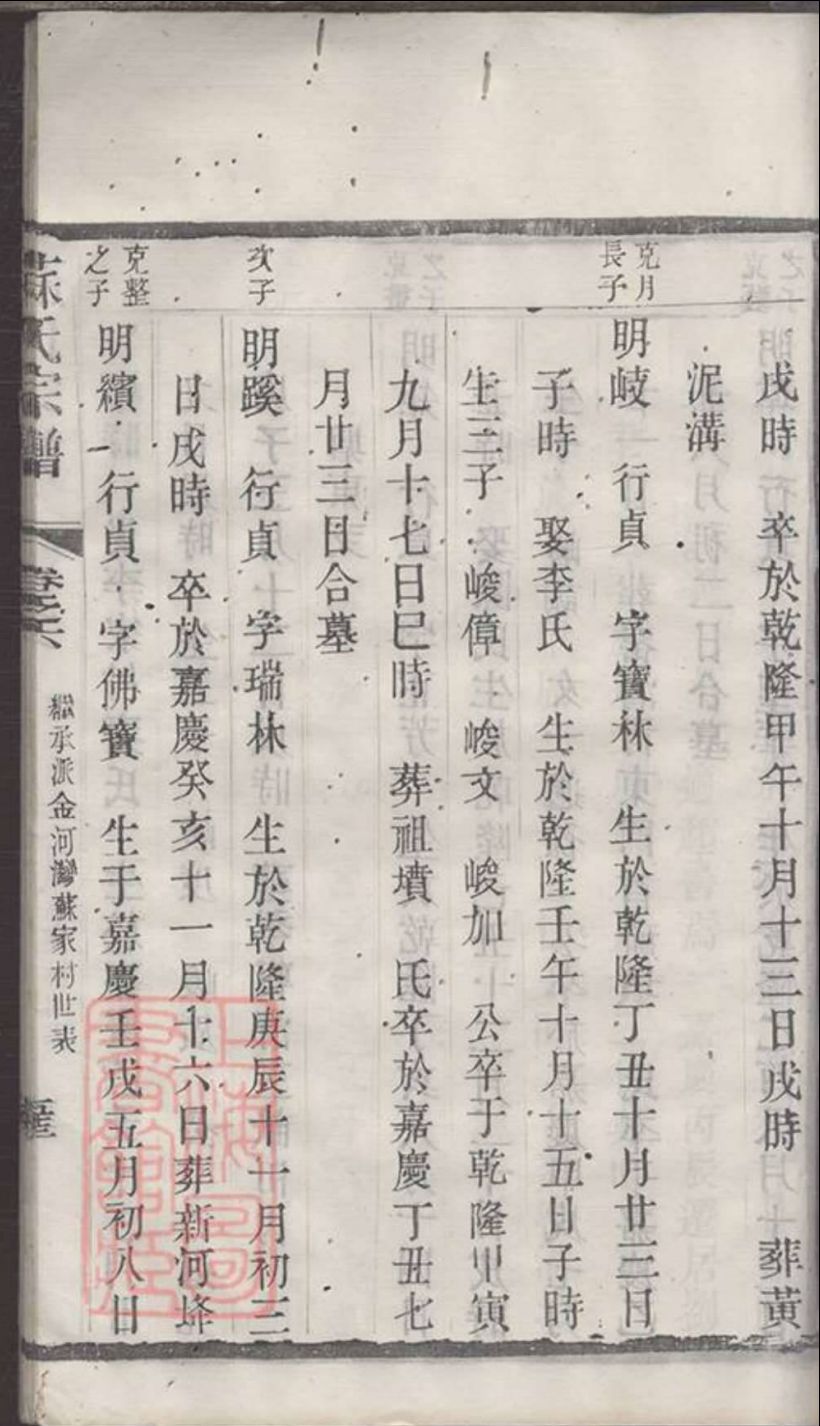 戌時　卒於乾隆甲午十月十三日戌時　葬黃
泥溝
克月
長子
明岐　行貞　字寶林　生於乾隆丁丑十月廿三日
子時　娶李氏　生於乾隆壬午十月十五日子時
生三子　峻偉　峻文　峻加　公卒于乾隆甲寅
九月十七日巳時　葬祖墳　氏卒於嘉慶丁丑七
月廿三日合墓
次子
明蹊　行貞　字瑞林　生於乾隆庚辰十一月初三
日戌時　卒於嘉慶癸亥十一月十六日葬新河埄
克整
之子
明繽　行貞　字佛寶　生于嘉慶壬戌五月初八日
蘇氏宗譜　卷之六
繼承派金河灣蘇家村世表